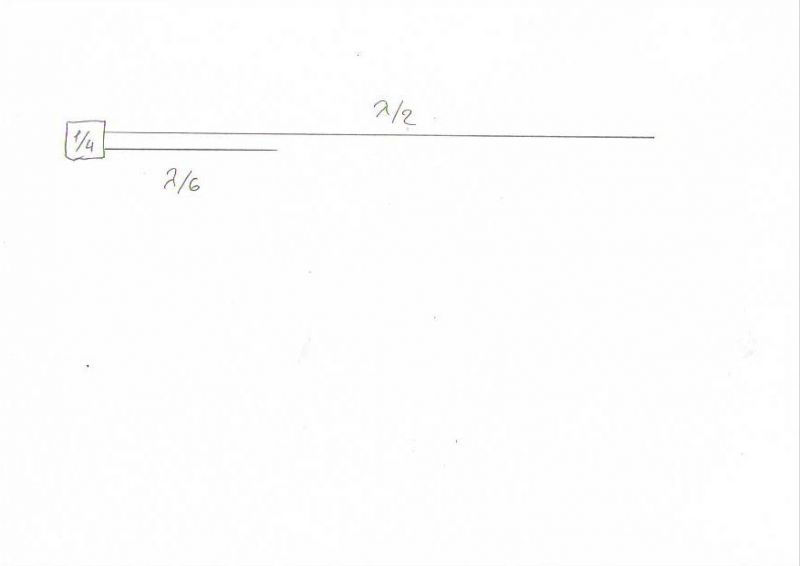 λ/2
1/4
λ/6